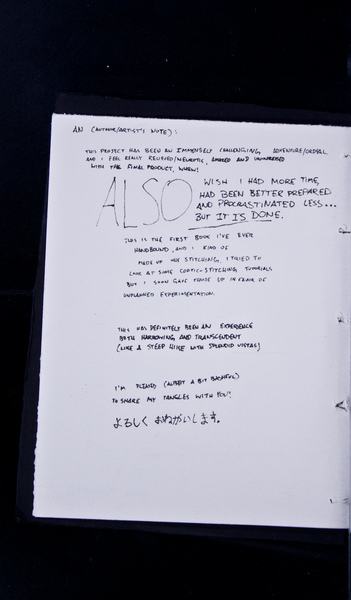 AN (AUTHOR/ARTIST'S NOTE):
THIS PROJECT HAS BEEN AN IMMENSELY CHALLENGING ADVENTURE/ORDEAL
AND I FEEL REALLY RELIEVED/NEUROTIC, AMAZED AND UNIMPRESSED
WITH THE FINAL PRODUCT, WHEW!
ALSO WISH I HAD MORE TIME,
HAD BEEN BETTER PREPARED
AND PROCRASTINATED LESS...
BUT IT IS DONE.
THIS IS THE FIRST BOOK I'VE EVER
HANDBOUND, AND I KIND OF
MADE UP THE STITCHING. I TRIED TO
LOOK AT SOME COPTIC-STITCHING TUTORIALS
BUT I SOON GAVE THOSE UP IN FAVOR OF
UNPLANNED EXPERIMENTATION.
THIS HAS DEFINITELY BEEN AN EXPERIENCE
BOTH HARROWING AND TRANSCENDENT
(LIKE A STEEP HIKE WITH SPLENDID VISTAS)
I'M PLEASED (ALBEIT A BIT BASHFUL)
TO SHARE MY TANGLES WITH YOU!
よろしく おねがいします。